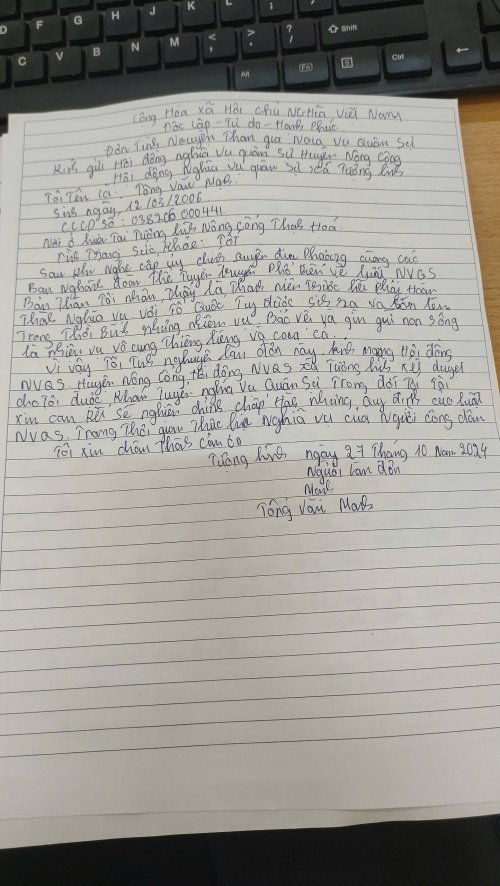 Shift
Alt
Fn
Ctrl
C V B N M
Công Hòa xã Hôi chủ NGhĩa Việt Nam
Đôc Lâp - Tử do - Hanh Phúc
Đơn Tình Nguyên Tham gia Nghĩa Vu Quân Sử
Kính gửi Hôi đông nghĩa vu quân sử Huyên Nông Công
Hôi đông Nghĩa Vu quân sử xã Tượng lĩnh
Tôi Tên là: Tông Văn Manh
Sinh ngày, 12/03/2006
CCCD Số: 038206 000441
Nơi ở hiên Tai Tường lĩnh Nông Công Thanh Hoá
Tình Trang Sức Khỏe: Tốt
Sau khi Nghe câp uy chính quyên đia Phương cùng các
Ban Nghành đoàn Thể Tuyên truyên Phổ biên vê luât NVQS
Bản Thân Tôi nhân Thây là Thanh niên Trước hêt Phải Hoàn
Thành Nghĩa Vu với Tổ Quốc Tuy được sinh ra và lớn lên
Trong Thời Bình nhưng nhiêm vu Bảo vê và gìn giữ non Sông
là nhiêm vu vô cùng Thiêng liêng và cao cả.
Vì vây Tôi Tình nghuyên làm đơn này kính mong Hôi đông
NVQS Huyên Nông Công, Hôi đông NVQS xã Tường lĩnh xét duyêt
cho Tôi được Khám Tuyển nghĩa Vu Quân Sử Trong đợt Tới Tôi
xin cam kêt Sẽ nghiêm chỉnh châp Hành những quy đinh của luât
NVQS. Trong Thời gian Thức hiên Nghĩa vu của Người công dân
Tôi xin chân Thành cảm ơn
Tường lĩnh ngày 27 Tháng 10 Năm 2024
Người làm đơn
Manh
Tống Văn Manh